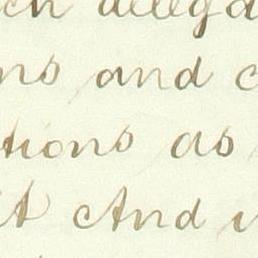 ch allega
ns and c
tions as
it And